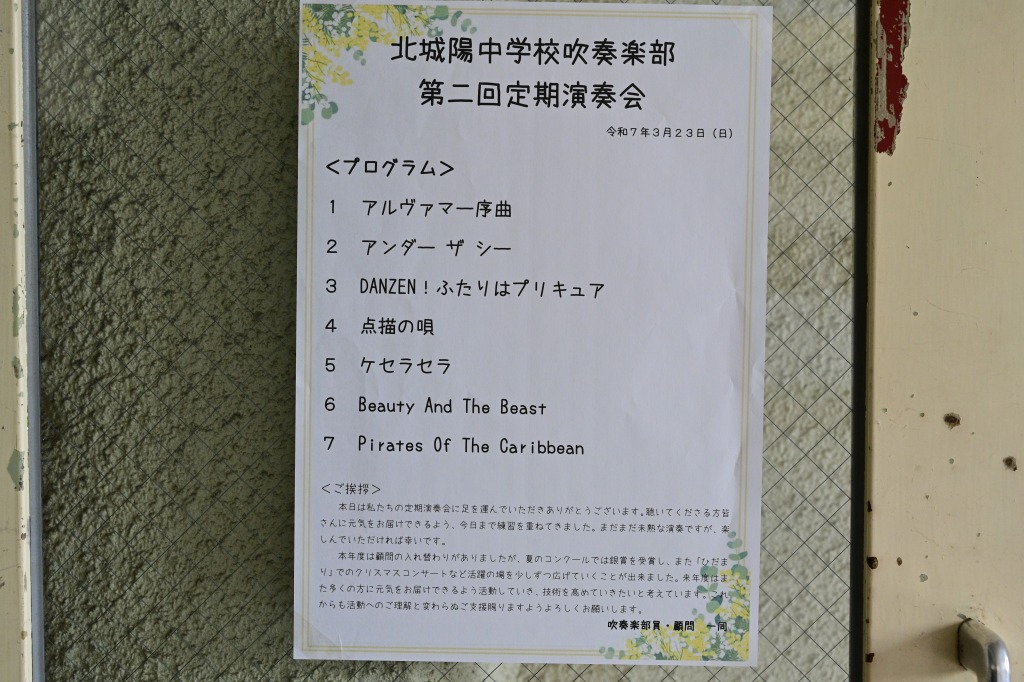 北城陽中学校吹奏楽部
第二回定期演奏会
令和７年３月２３日（日）
＜プログラム＞
１　アルヴァマー序曲
２　アンダー ザ シー
３　DANZEN！ふたりはプリキュア
４　点描の唄
５　ケセラセラ
６　Beauty And The Beast
７　Pirates Of The Caribbean
＜ご挨拶＞
本日は私たちの定期演奏会に足を運んでいただきありがとうございます。聴いてくださる方皆
さんに元気をお届けできるよう、今日まで練習を重ねてきました。まだまだ未熟な演奏ですが、楽
しんでいただければ幸いです。
本年度は顧問の入れ替わりがありましたが、夏のコンクールでは銀賞を受賞し、また「ひだま
り」でのクリスマスコンサートなど活躍の場を少しずつ広げていくことが出来ました。来年度はま
た多くの方に元気をお届けできるよう活動していき、技術を高めていきたいと考えています。これ
からも活動へのご理解と変わらぬご支援賜りますようよろしくお願いします。
吹奏楽部員・顧問　一同